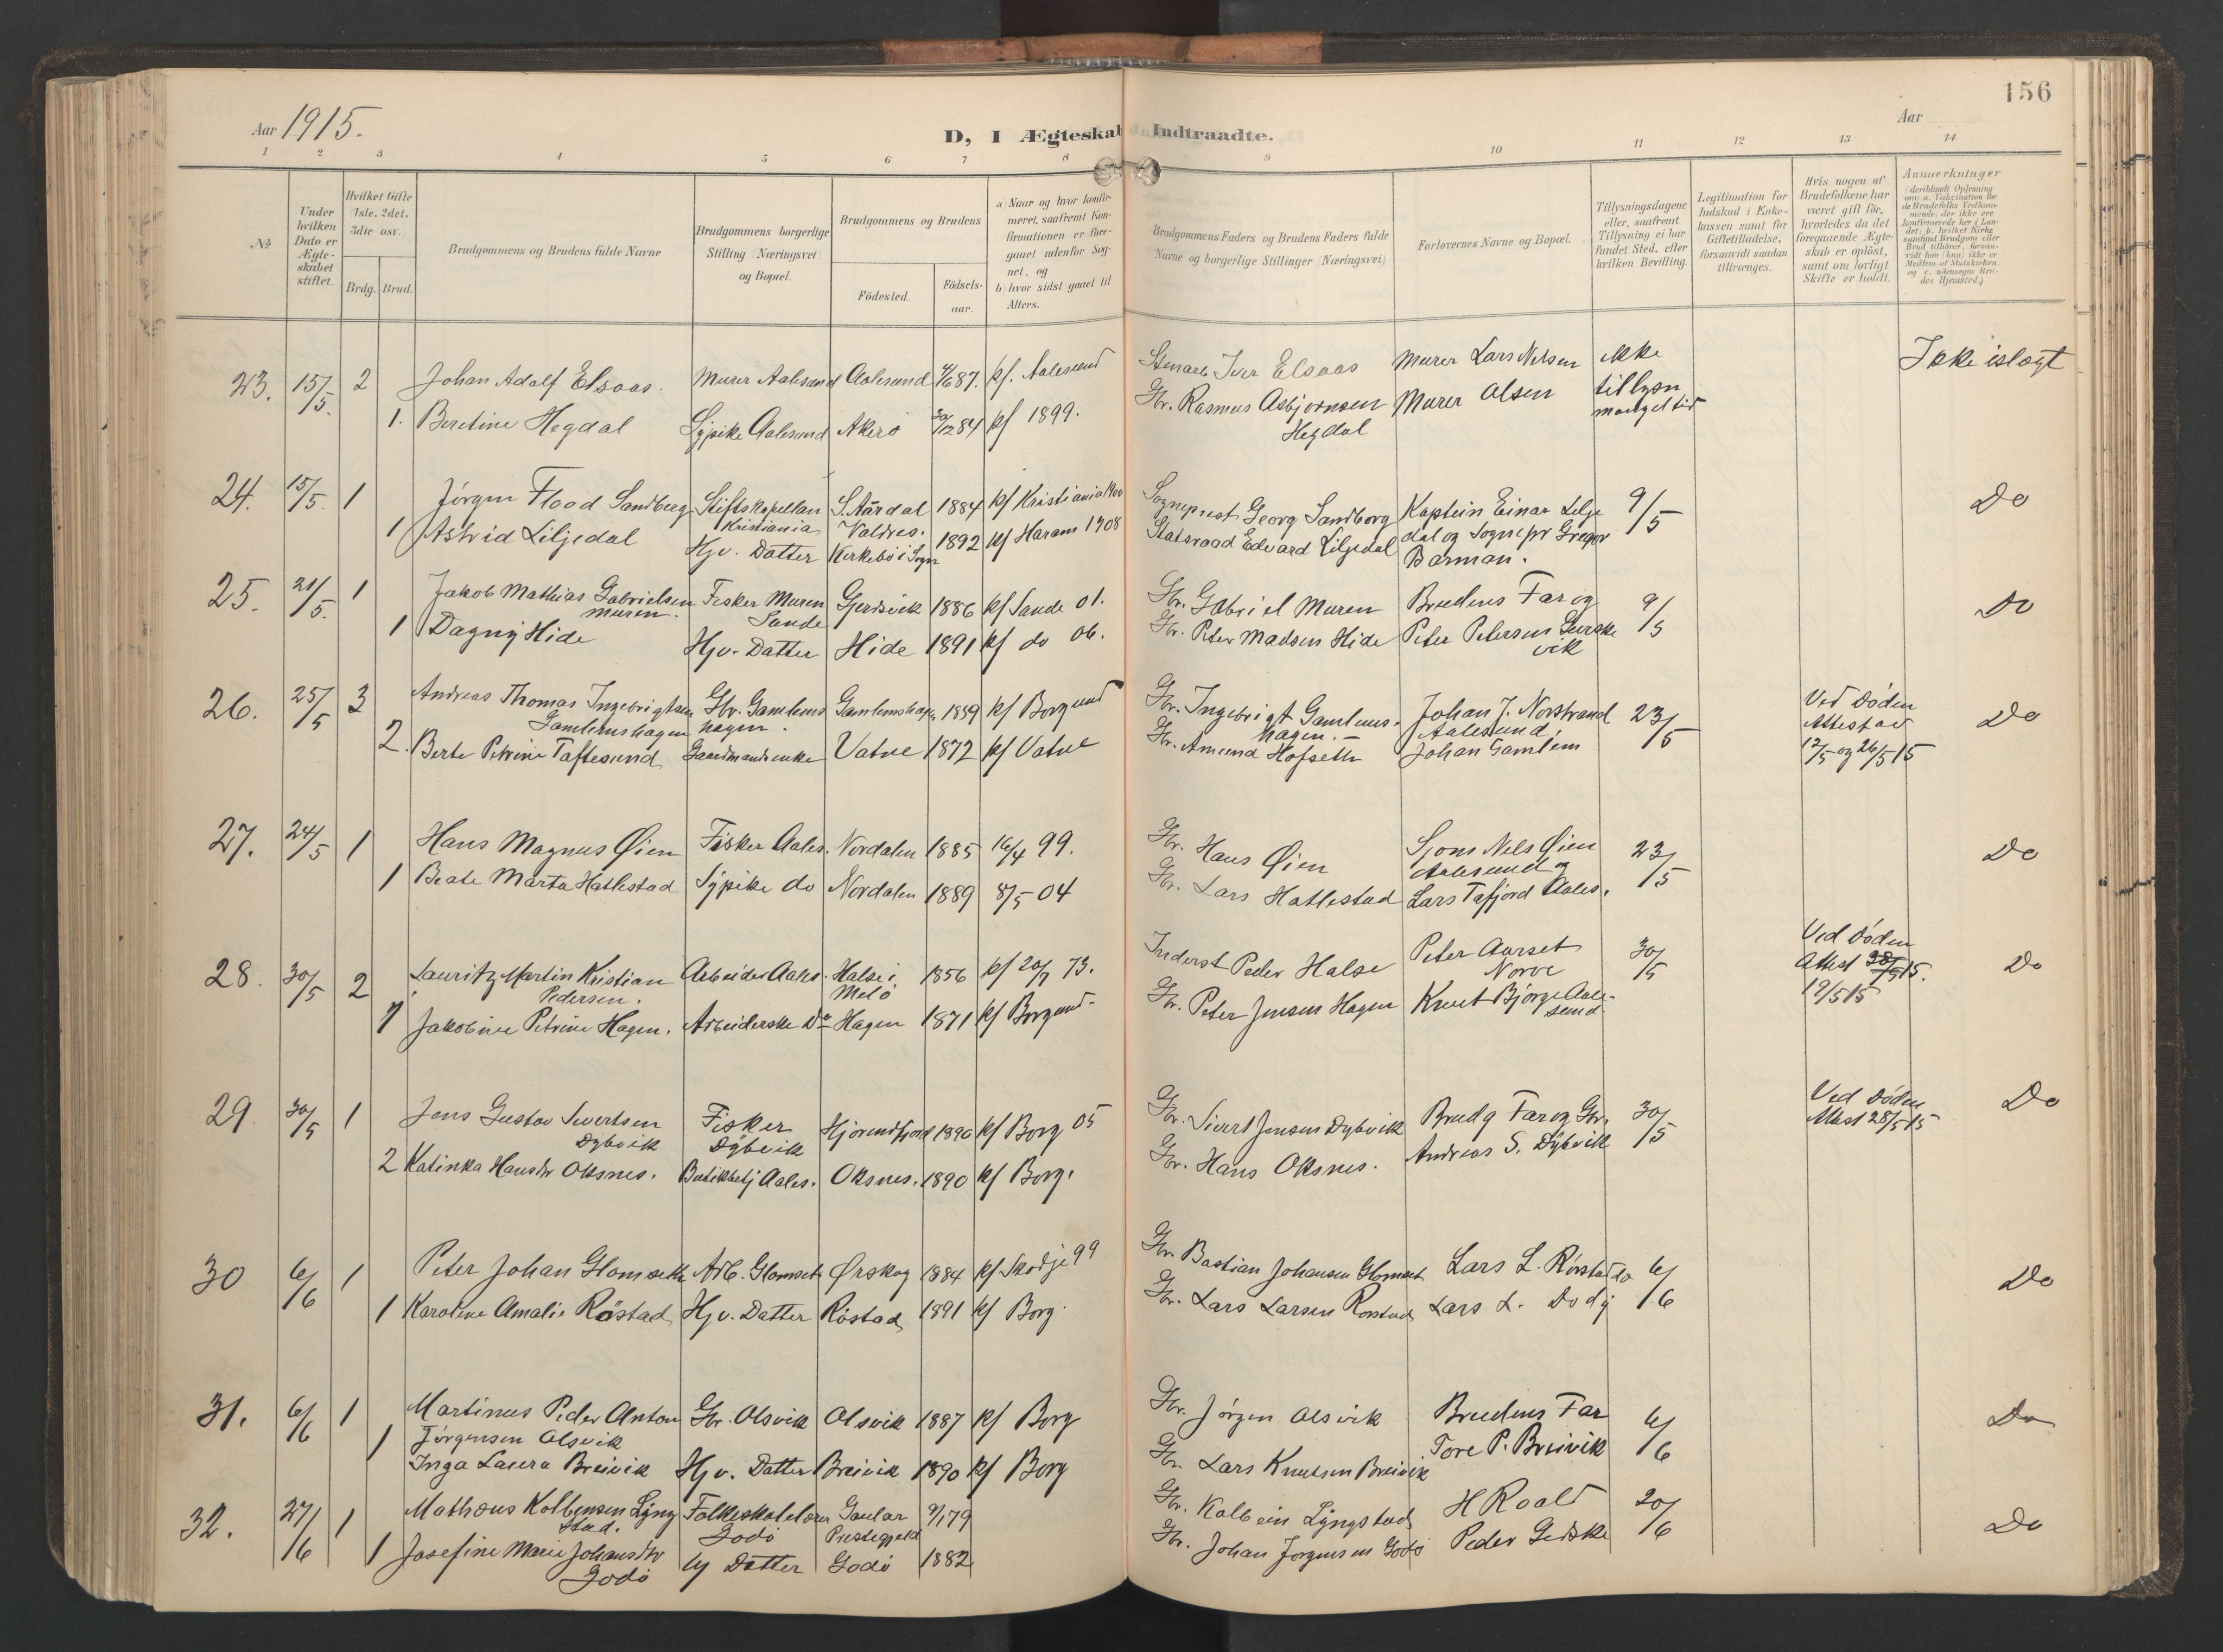 156
Aar 1915.
D, I Ægteskab Indtraadte.
Aar
1 2 3 4 5 6 7 8 9 10 11 12 13 14
№
Under hvilken Dato er Ægteskabet stiftet.
Hvilket Gifte (1ste, 2det, 3die osv.
Brdg. Brud.
Brudgommens og Brudens fulde Navne
Brudgommens borgerlige Stilling (Næringsvei) og Bopæl.
Brudgommens og Brudens
Fødested.
Fødselsaar.
a) Naar og hvor konfirmeret, saafremt Konfirmationen er foregaaet udenfor Sognet, og
b) hvor sidst gaaet til Alters.
Brudgommens Faders og Brudens Faders fulde Navne og borgerlige Stillinger (Næringsvei)
Forlovernes Navne og Bopæl.
Tillysningsdagene eller, saafremt Tillysning ei har fundet Sted, efter hvilken Bevilling.
Legitimation for Indskud i Enkekassen samt for Giftetilladelse, forsaavidt saadan tiltrænges.
Hvis nogen af Brudefolkene har været gift før, hvorledes da det foregaaende Ægteskab er opløst, samt om lovligt Skifte er holdt.
Anmerkninger
23. 15/5. 2 Johan Adolf Elsaas. Murer Aalesund Aalesund 87. kf. Aalesund Iver Elsaas Murer Lars Nelsen ikke Ikke islagt
1. Beretine Hegdal Sypike Aalesund Akerø 30/12 84 kf 1899. Gbr. Rasmus Asbjørnsen Hegdal Murer Olsen tillysn mangel tid
24. 15/5. 1 Jörgen Flood Sandberg Stiftskapellan Kristiania S. Aardal Valdres. 1884 kf Kristiania 1900 Sogneprest Georg Sandberg Kaptein Einar Lilje 9/5 Do
1 Astrid Liljedal Hjv. Datter Kirkebö i Sogn 1892 kf Haram 1908 Statsraad Edvard Liljedal dal og Sognepr Gregor Barman.
25. 21/5. 1 Jakob Mathias Gabrielsen Muren. Fisker Muren Sande Gjerdsvik 1886 kf Sande 01. Gbr. Gabriel Muren Brudens Far og 9/5 Do
1 Dagny Hide Hjv. Datter Hide 1891 kf do 06. Gbr. Peter Madsen Hide Peter Petersen Gurskevik
26. 25/5 3 Andreas Thomas Ingebrigtsen Gamlemshagen Gbr. Gamlemshagen. Gamlemshagen 1859 kf Borgund Gbr. Ingebrigt Gamlemshagen. Johan J. Norstrand Aalesund 23/5 Ved Döden Attestad 12/5 og 26/5 15 Do
2. Berte Petrine Taftesund Gaardmandsenke Vatne 1872 kf Vatne Gbr. Amund Hofseth Johan Gamlem
27. 24/5 1 Hans Magnus Øien Fisker Aales. Nordalen 1885 16/4 99. Gbr. Hans Øien Sjøm Nels Øien Aalesund og 23/5 Do
1 Beate Marta Hatlestad Sypike do Nordalen 1889 8/5 04 Gbr. Lars Hatlestad Lars Tafjord Aales.
28. 30/5 2 Lauritz Martin Kristian Pedersen. Arbeider Aales. Halse i Melö 1856 kf 20/7 73. Inderst Peder Halse Peter Aurset Norve 30/5 Ved döden Attest 15. 19/5 15 Do
1 Jakobine Petrine Hagen. Arbeiderske Do Hagen 1871 kf Borgund Gbr. Peter Jensen Hagen Knut Bjørge Aalesund
29. 30/5 1 Jens Gustav Sivertsen Dybvik Fisker Dybvik Hjörundfjord 1890 kf Borg 05 Gbr. Sivert Jensen Dybvik Brudg Far og Gbr. 30/5 Ved döden Attest 28/5 15 Do
2 Katinka Hansdtr Oksnes. Butikbetj Aales. Oksnes. 1890 kf Borg. Gbr. Hans Oksnes. Andreas S. Dybvik
30 6/6 1 Peter Johan Glomseth Arb. Glomset Ørskog 1884 kf Skodje 99 Gbr. Bastian Johansen Glomset Lars L. Röstad 6/6 Do
1 Karoline Amalie Röstad Hjv. Datter Röstad 1891 kf Borg. Gbr. Lars Larsen Rörstad Lars L.
31. 6/6 1 Martinus Peder Anton Gbr. Alsvik Alsvik 1887 kf Borg Gbr. Jörgen Alsvik Brudens Far 6/6 Do
1 Jørgensen Alsvik Tore P. Breivik
Inga Laura Breivik Hjv. Datter Breivik 1890 kf Borg Gbr. Lars Knutsen Breivik
32. 27/6 1 Mathæus Kolbensen Lyngstad. Folkeskolelærer Godö Gaular Prestegjeld 79 Gbr. Kolbein Lyngstad H Roald 20/6 Do
1 Josefine Marie Johansdtr Godö Hj Datter Godö 1882 Gbr. Johan Jørgensen Godö Peder Giske